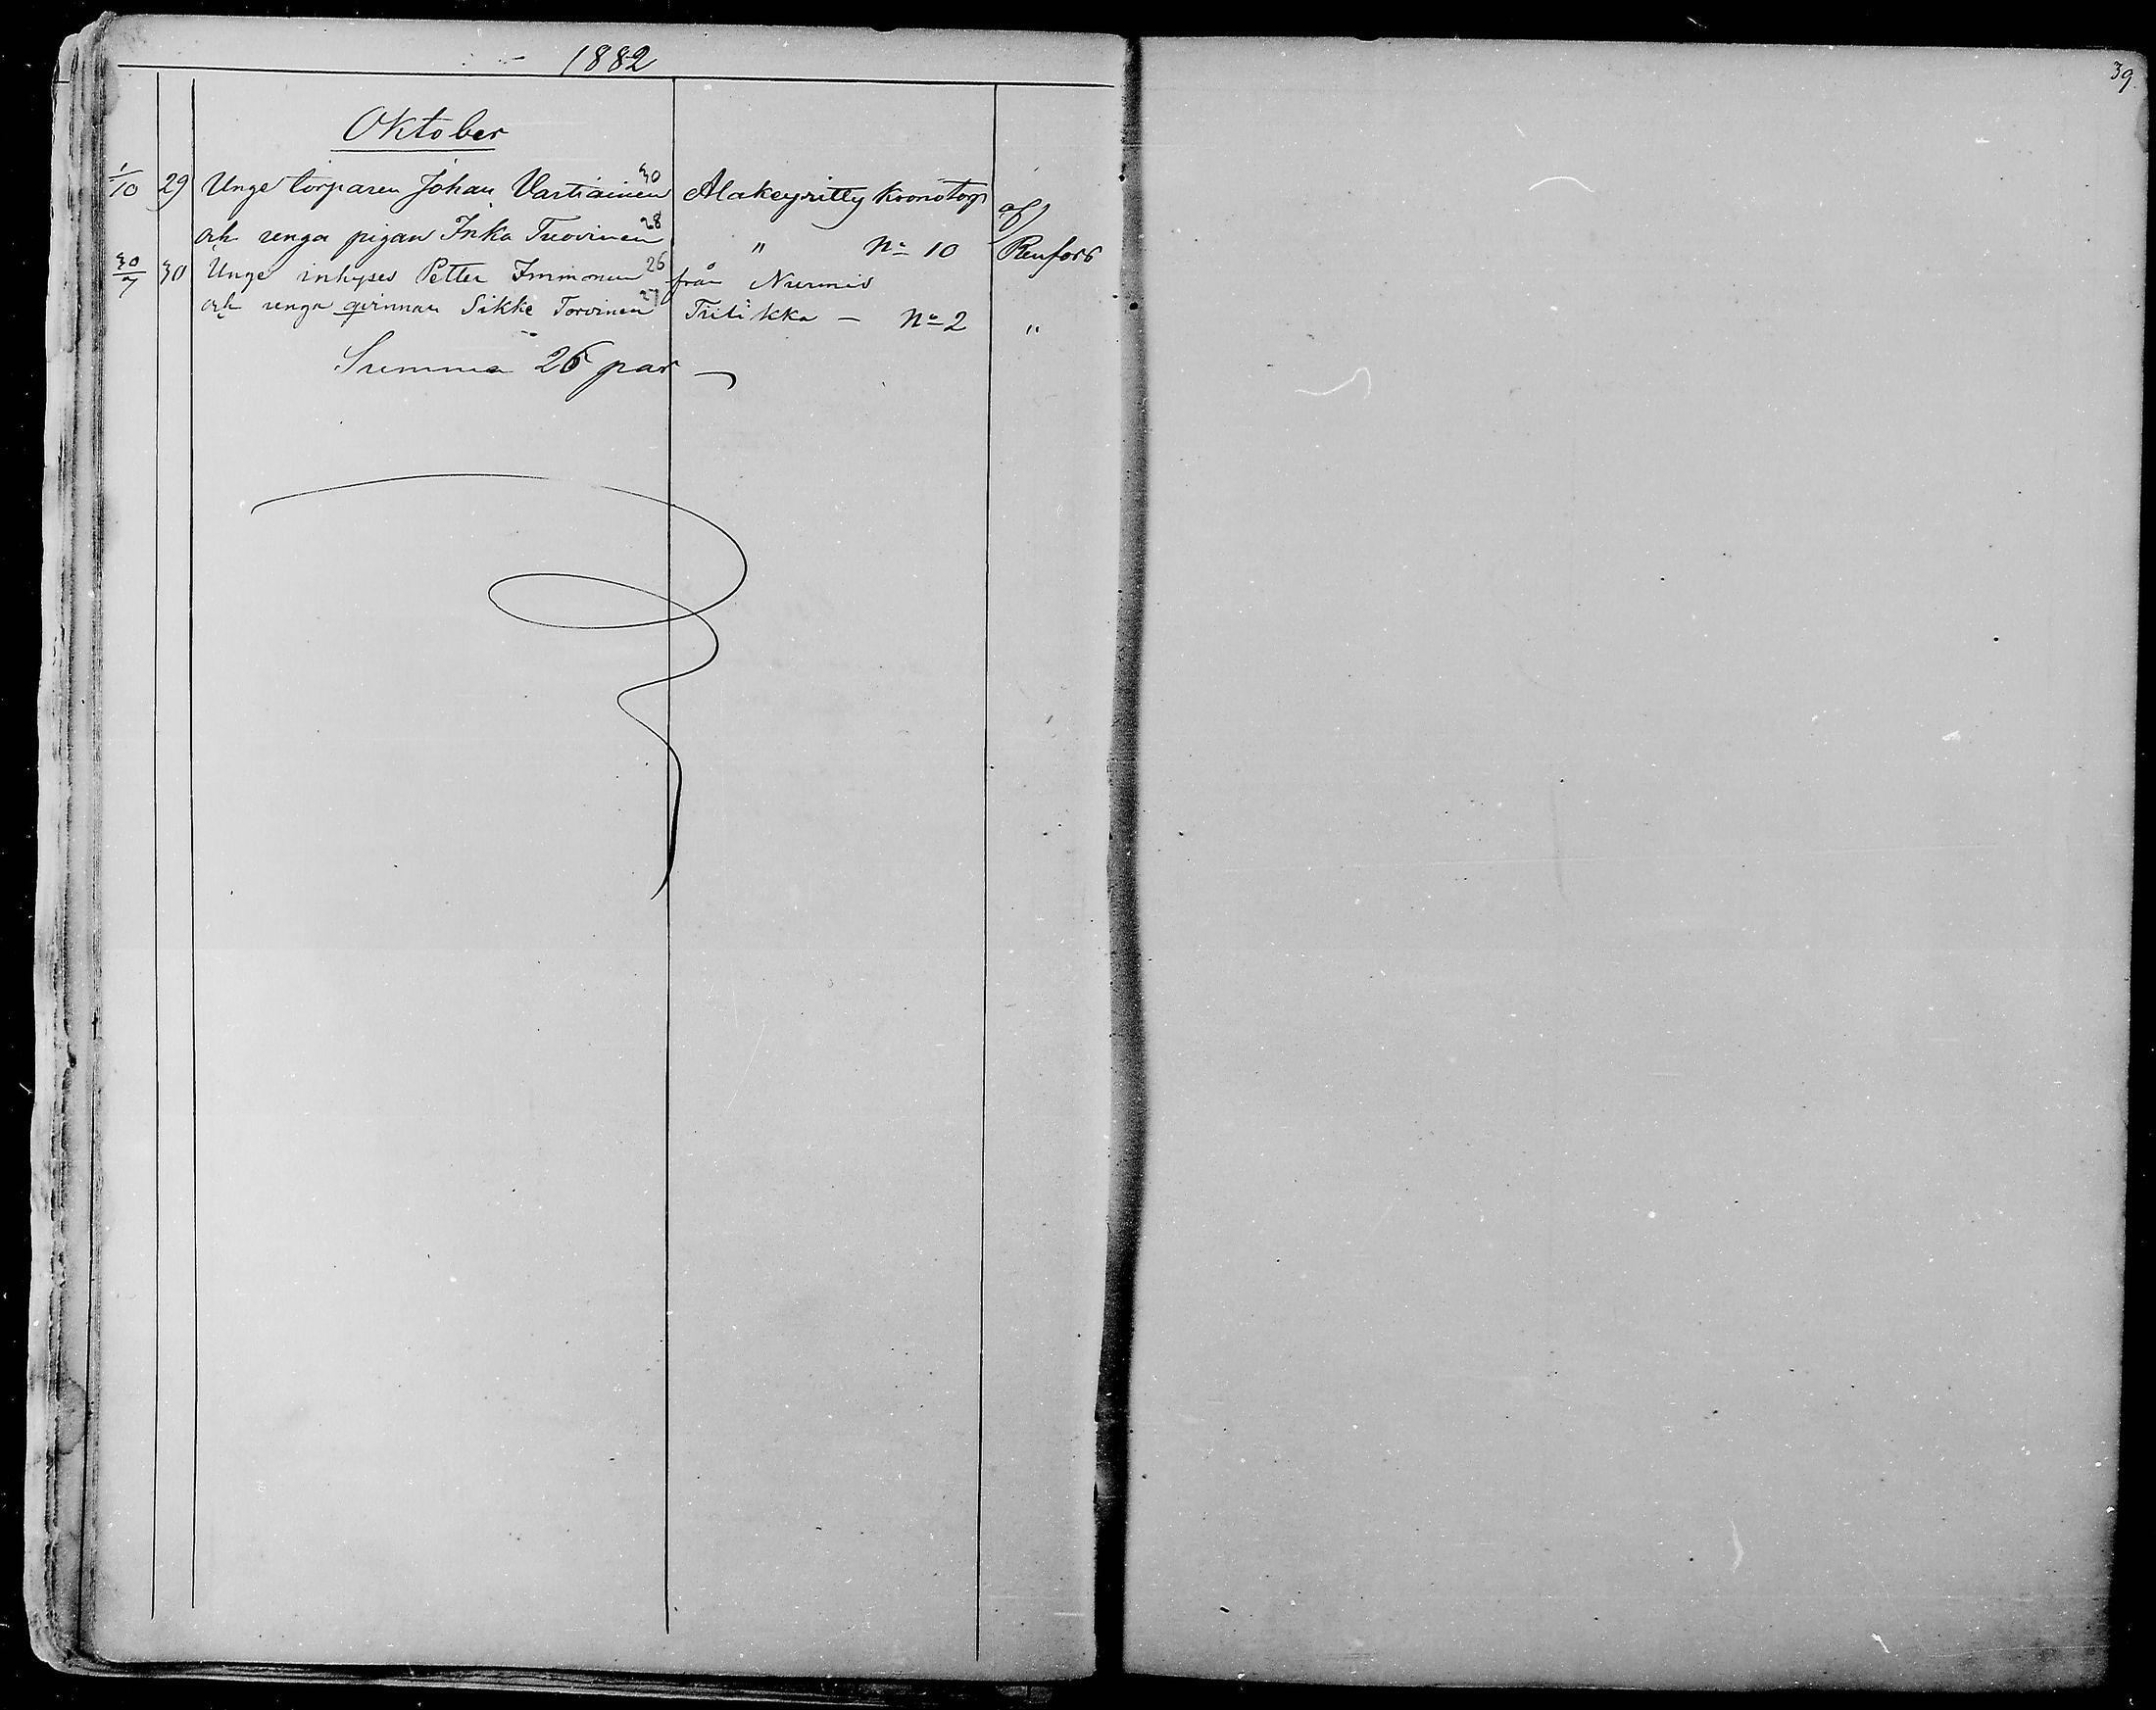 1882
39
Oktober
1/10 29 Unge torparen Johan Vartiainen 30 Alakeyritty kronotorp af
och unga pigan Inka Tuovinen 28 " No 10 Renfors
30/7 30 Unge inhyses Petter Immonen 26 från Nurmis
och unga qvinnan Sikke Torvinen 27 Tiilikka — No 2 "
Summa 26 par —